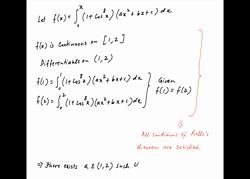 Let f(x) = ∫₀ˣ (1+cos⁸x)(ax²+bx+c) dx
f(x) is continuous on [1,2]
Differentiable on (1,2)
f(1) = ∫₀¹ (1+cos⁸x)(ax²+bx+c) dx
f(2) = ∫₀² (1+cos⁸x)(ax²+bx+c) dx
Given
f(1) = f(2)
All conditions of Rolle's
theorem are satisfied.
⇒ There exists α ∈ (1,2) such